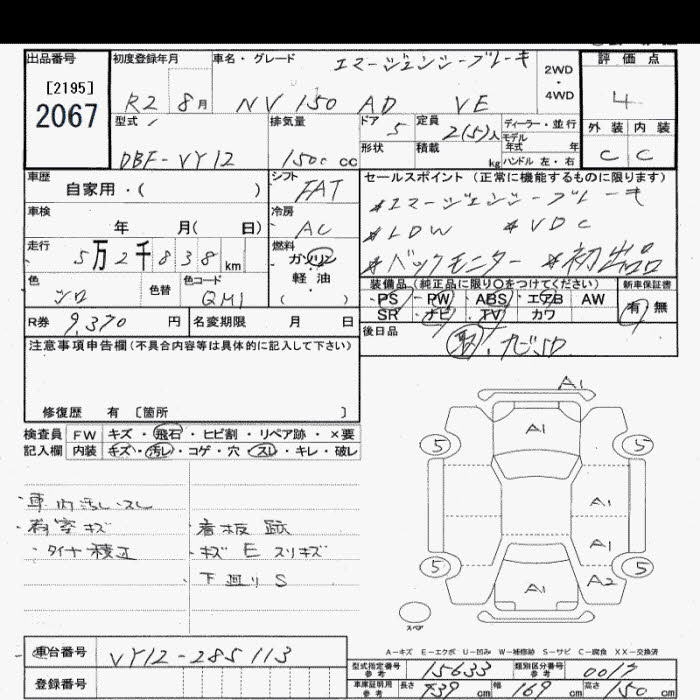 出品番号
[2195]
2067
初度登録年月
R2 8月
車名・グレード
エマージェンシーブレーキ
NV 150 AD VE
2WD
・
4WD
評価点
4
外装 内装
C C
型式
DBF-VY12
排気量
1500 cc
ドア 5
形状
定員 2(5)人
積載 kg
ディーラー・並行
モデル
年式 年
ハンドル 左・右
車歴
自家用・( )
シフト
FAT
セールスポイント (正常に機能するものに限ります)
*エマージェンシーブレーキ
*LDW *VDC
*バックモニター *初出品
車検
年 月( 日)
冷房
AC
走行
5万2千838km
燃料
ガソリン
軽油
( )
色
シロ
色替
色コード
QM1
装備品 (純正品に限り○をつけてください)
PS・PW・ABS・エアB AW
SR ナビ TV カワ
新車保証書
有 無
R券 9,370 円
名変期限 月 日
後日品
取、ナビSD
注意事項申告欄(不具合内容等は具体的に記入して下さい)
修復歴 有 〔箇所 〕
検査員 FW キズ・飛石・ヒビ割・リペア跡・×要
記入欄 内装 キズ・汚レ・コゲ・穴・スレ・キレ・破レ
・車内汚レ・スレ
・荷室キズ ・看板跡
・タイヤ積正 ・キズEスリキズ
・下廻りS
A1
A1
5 5
A1
A1
5 5
A1 A2
スペア
A－キズ E－エクボ U－凹み W－補修跡 S－サビ C－腐食 XX－交換済
車台番号 VY12-285113
登録番号
型式指定番号
参考
15633
類別区分番号
参考
0017
車庫証明用
参考
長さ 439 cm 幅 169 cm 高さ 150 cm